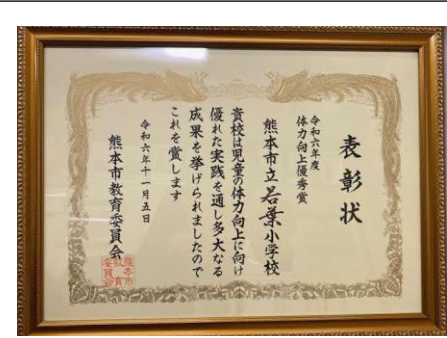 表彰状
令和六年度
体力向上優秀賞
熊本市立若葉小学校
貴校は児童の体力向上に向け
優れた実践を通し多大なる
成果を挙げられましたので
これを賞します
令和六年十一月五日
熊本市教育委員会
熊本市
教育
委員会